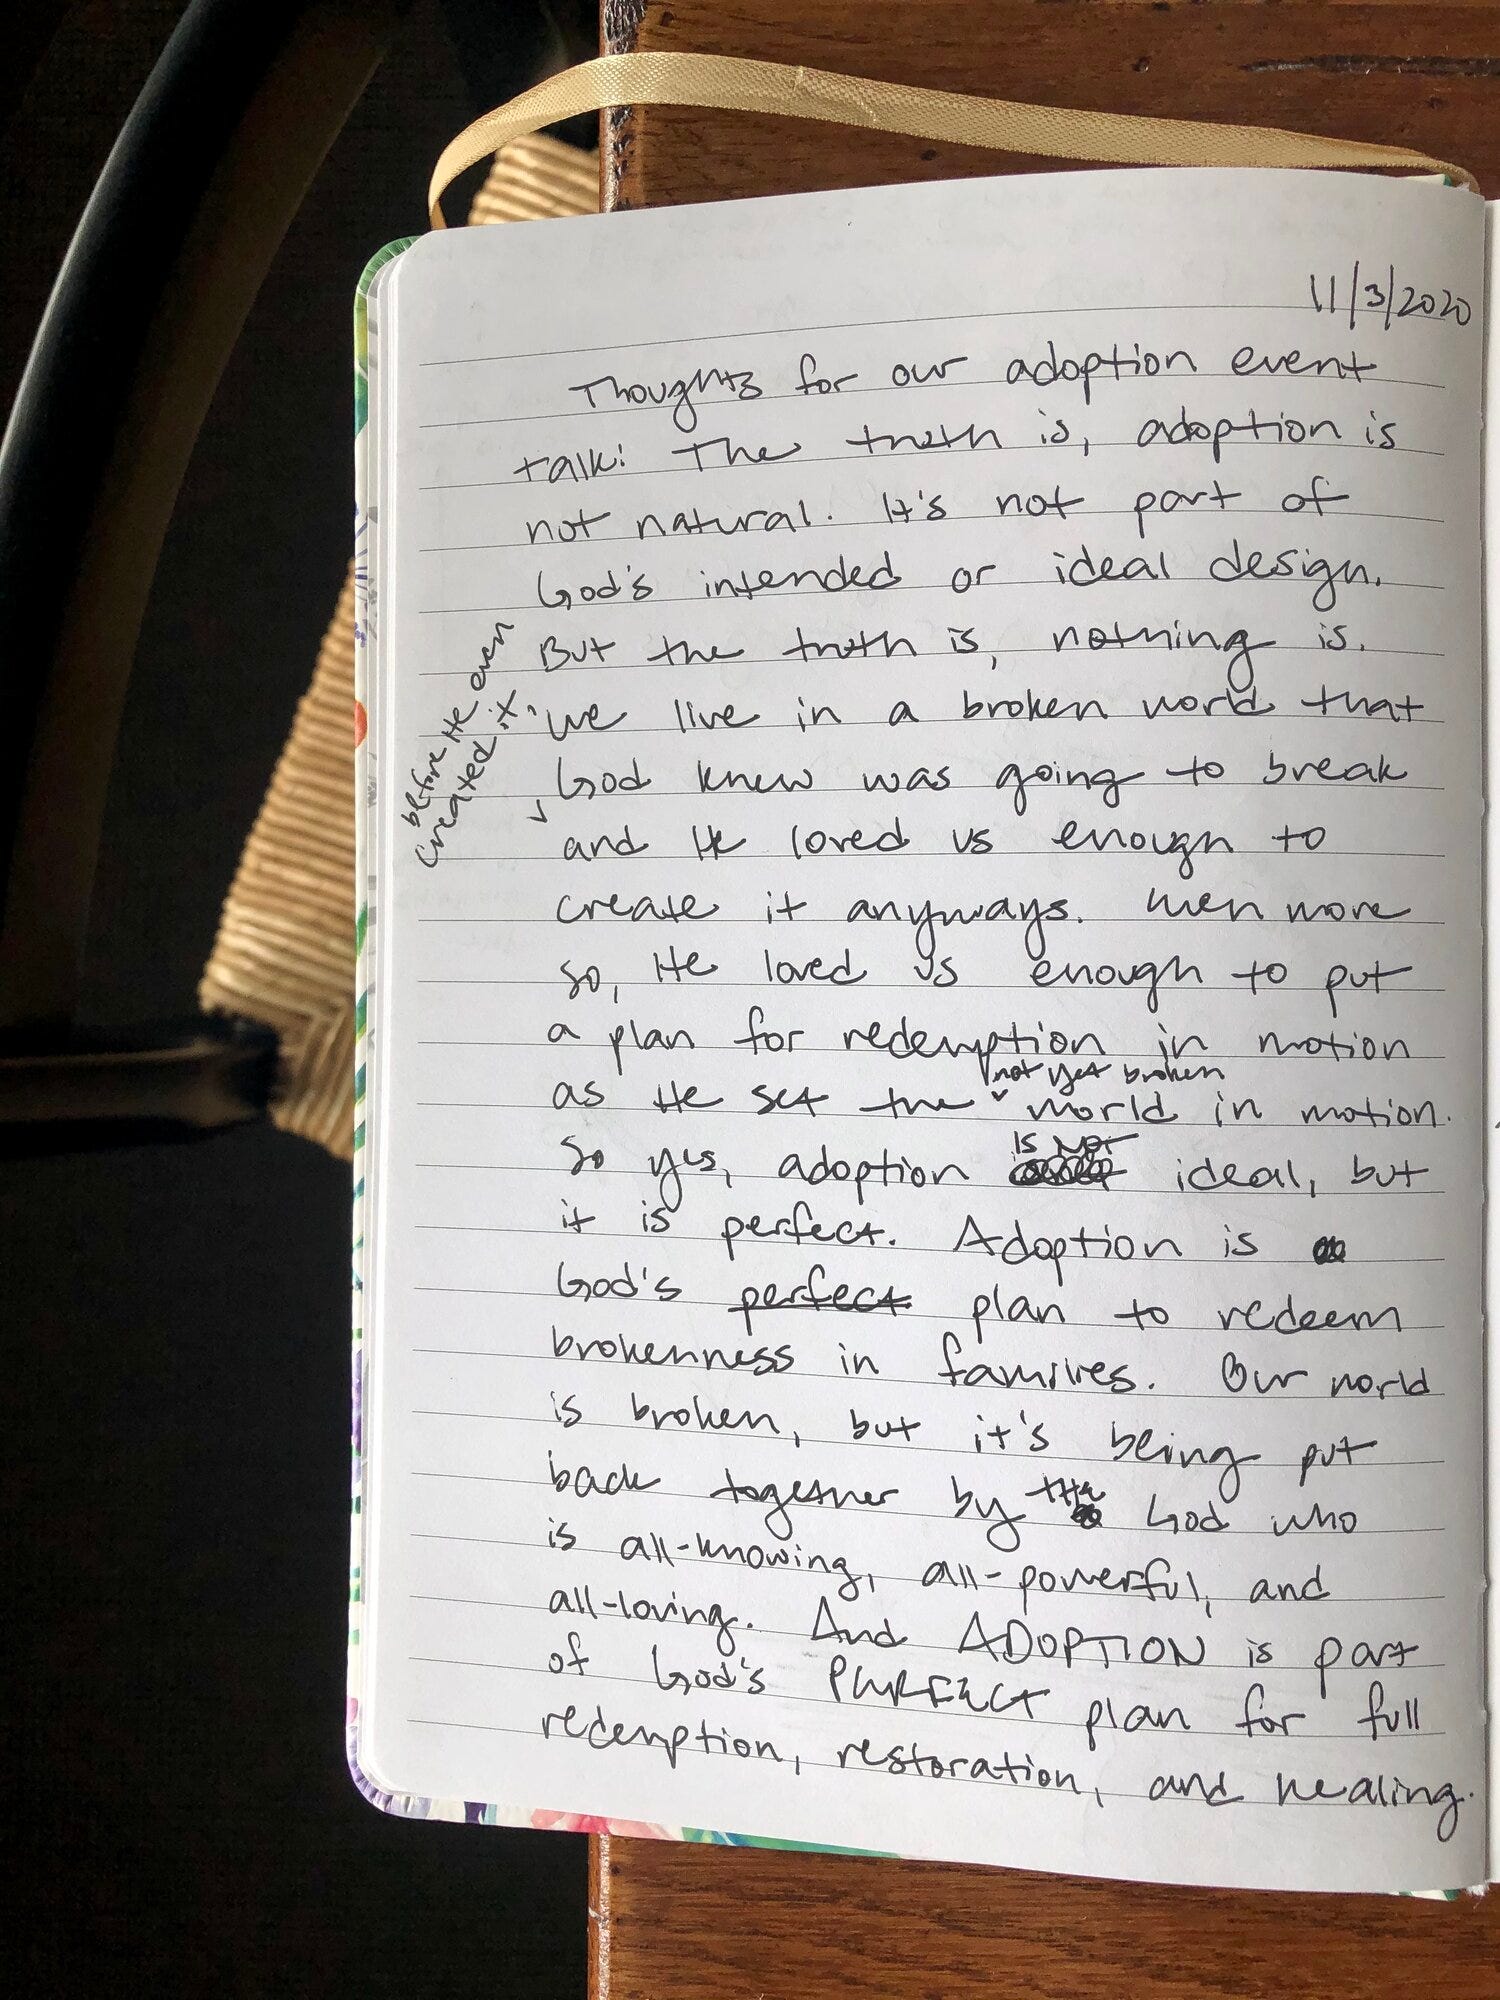 11/3/2020
Thoughts for our adoption event
talk: The truth is, adoption is
not natural. It's not part of
God's intended or ideal design.
But the truth is, nothing is.
We live in a broken world that
God knew was going to break
before He even
created it
and He loved us enough to
create it anyways. Even more
so, He loved us enough to put
a plan for redemption in motion
not yet broken
as He set the world in motion.
is not
So yes, adoption ideal, but
it is perfect. Adoption is
God's perfect plan to redeem
brokenness in families. Our world
is broken, but it's being put
back together by the God who
is all-knowing, all-powerful, and
all-loving. And ADOPTION is part
of God's PERFECT plan for full
redemption, restoration, and healing.